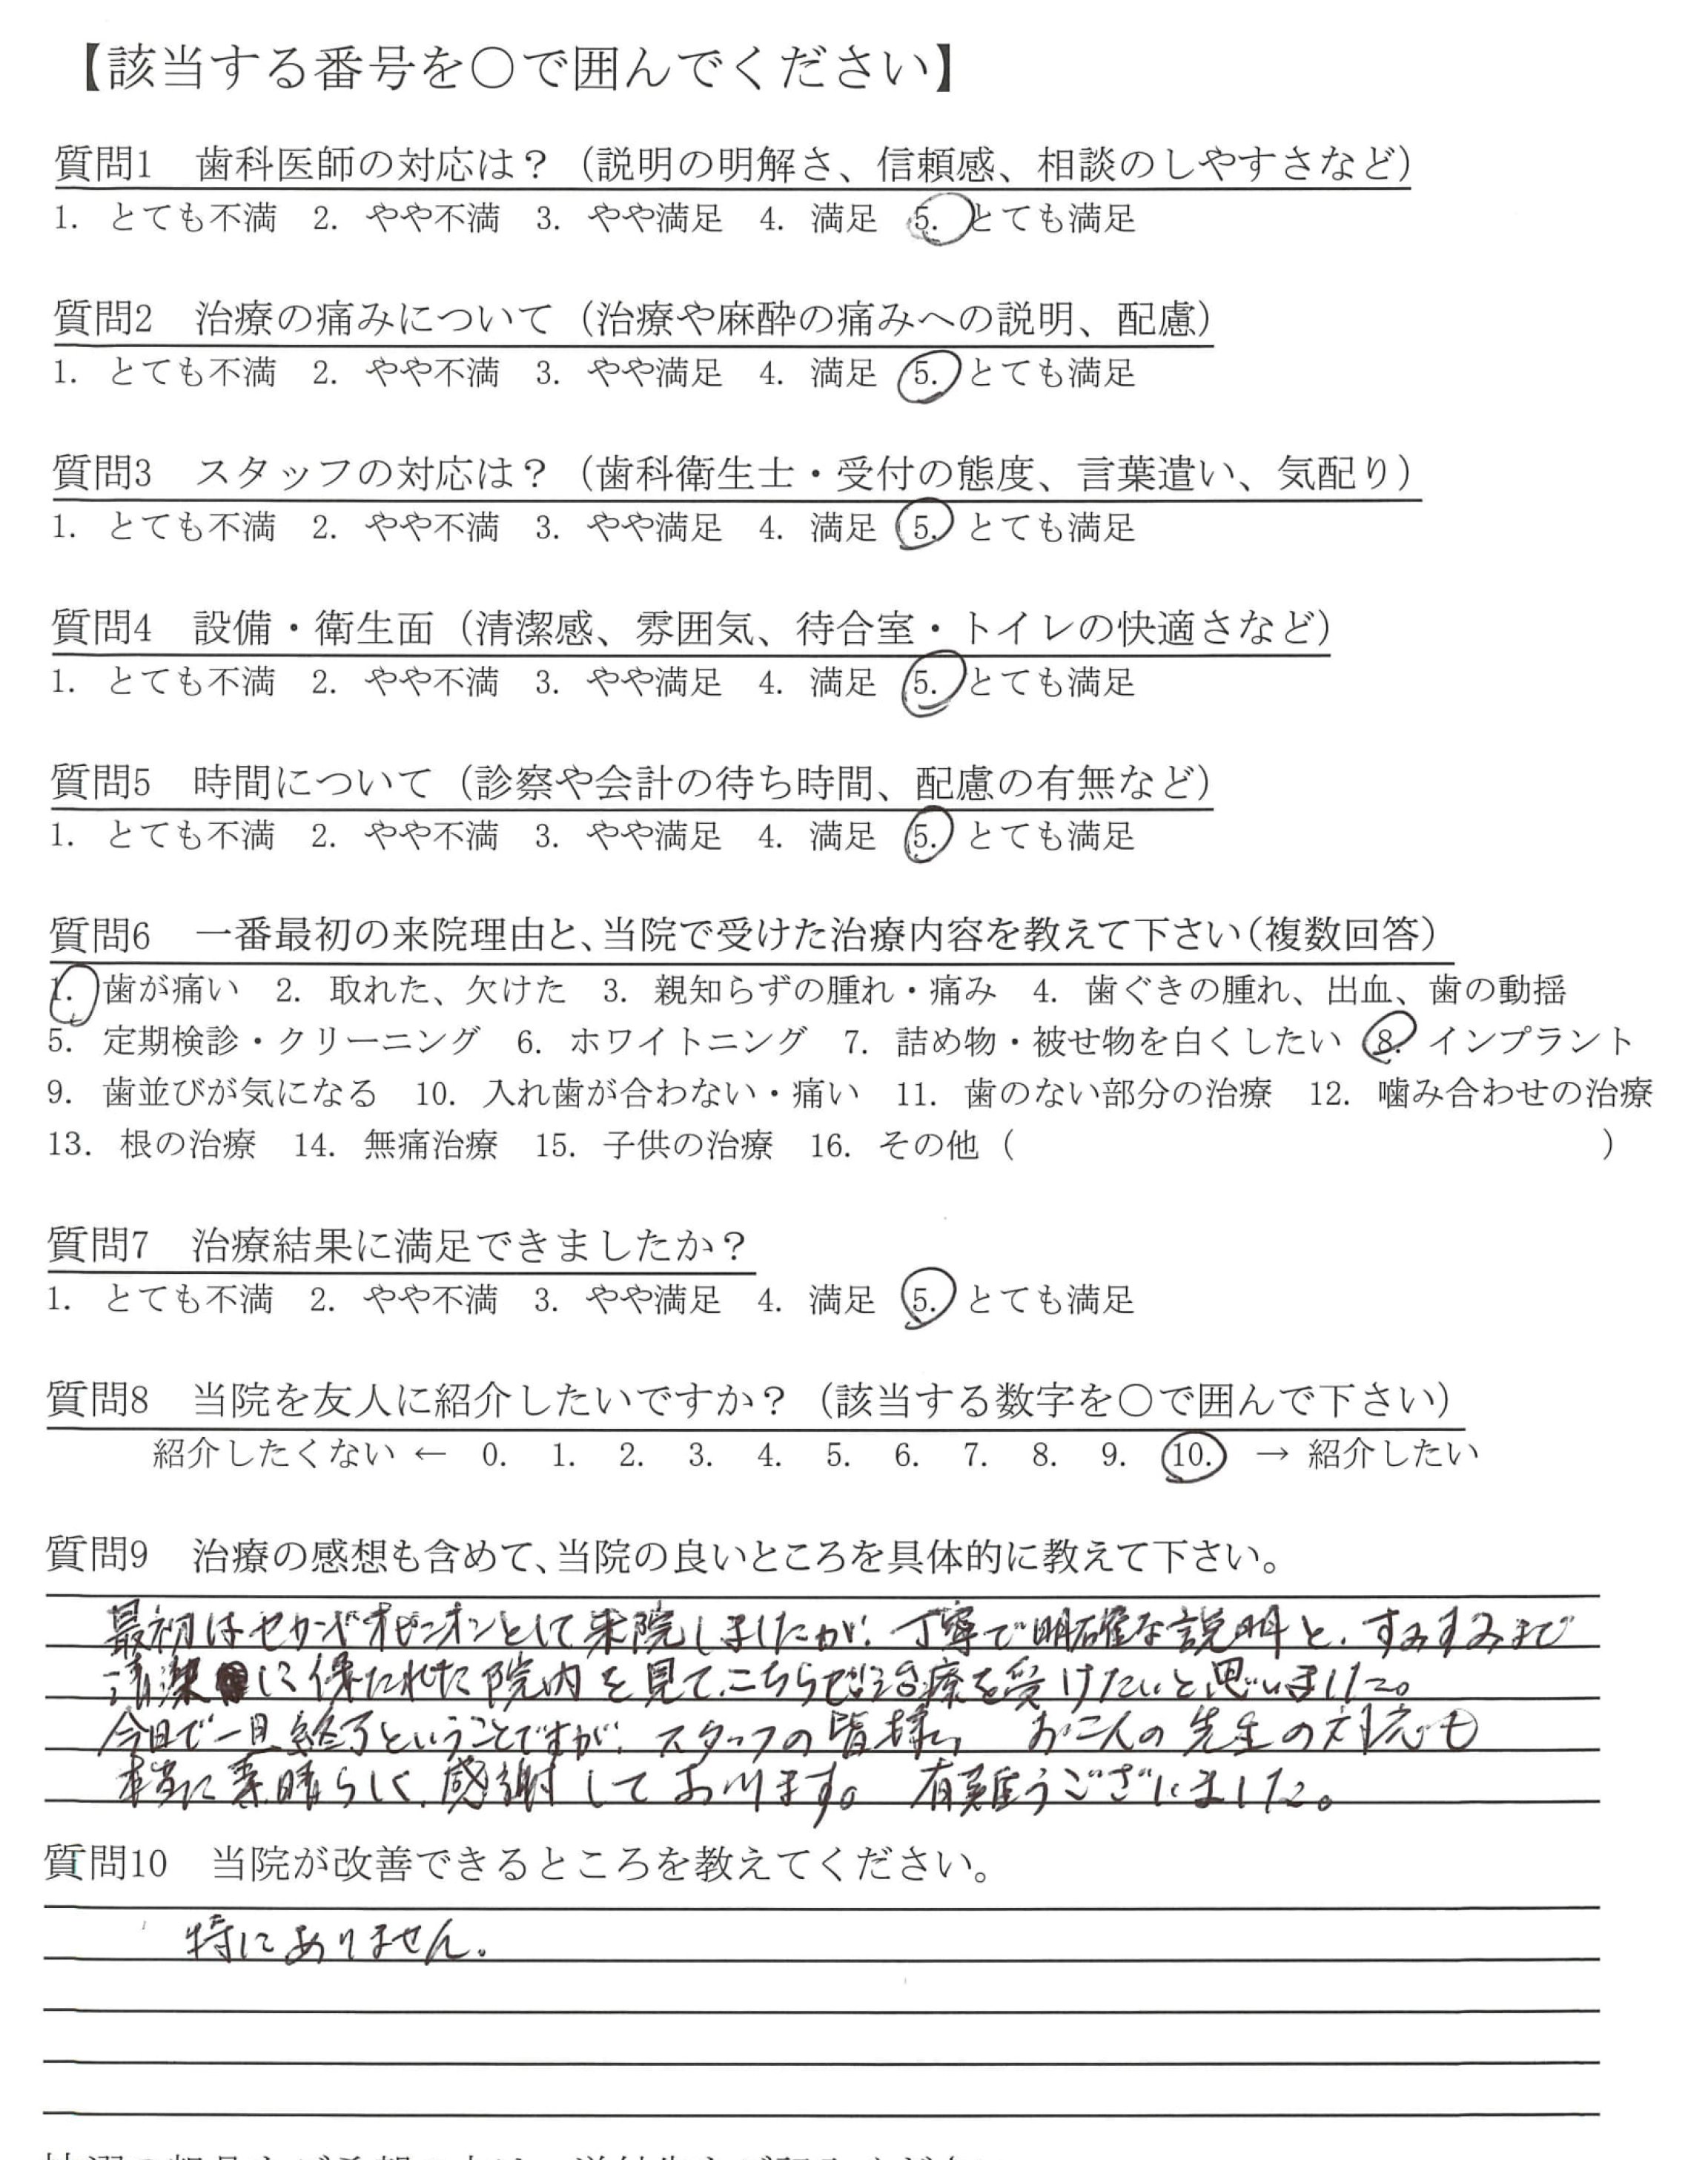 【該当する番号を○で囲んでください】
質問1　歯科医師の対応は？（説明の明解さ、信頼感、相談のしやすさなど）
1. とても不満　2. やや不満　3. やや満足　4. 満足　5. とても満足
質問2　治療の痛みについて（治療や麻酔の痛みへの説明、配慮）
1. とても不満　2. やや不満　3. やや満足　4. 満足　5. とても満足
質問3　スタッフの対応は？（歯科衛生士・受付の態度、言葉遣い、気配り）
1. とても不満　2. やや不満　3. やや満足　4. 満足　5. とても満足
質問4　設備・衛生面（清潔感、雰囲気、待合室・トイレの快適さなど）
1. とても不満　2. やや不満　3. やや満足　4. 満足　5. とても満足
質問5　時間について（診察や会計の待ち時間、配慮の有無など）
1. とても不満　2. やや不満　3. やや満足　4. 満足　5. とても満足
質問6　一番最初の来院理由と、当院で受けた治療内容を教えて下さい（複数回答）
1. 歯が痛い　2. 取れた、欠けた　3. 親知らずの腫れ・痛み　4. 歯ぐきの腫れ、出血、歯の動揺
5. 定期検診・クリーニング　6. ホワイトニング　7. 詰め物・被せ物を白くしたい　8. インプラント
9. 歯並びが気になる　10. 入れ歯が合わない・痛い　11. 歯のない部分の治療　12. 噛み合わせの治療
13. 根の治療　14. 無痛治療　15. 子供の治療　16. その他（　　　　　）
質問7　治療結果に満足できましたか？
1. とても不満　2. やや不満　3. やや満足　4. 満足　5. とても満足
質問8　当院を友人に紹介したいですか？（該当する数字を○で囲んで下さい）
紹介したくない ← 0. 1. 2. 3. 4. 5. 6. 7. 8. 9. 10. → 紹介したい
質問9　治療の感想も含めて、当院の良いところを具体的に教えて下さい。
最初はセカンドオピニオンとして来院しましたが、丁寧で明確な説明と、すみずみまで
清潔に保たれた院内を見て、こちらで治療を受けたいと思いました。
今日で一旦終了ということですが、スタッフの皆様、お二人の先生の対応も
本当に素晴らしく、感謝しております。有難うございました。
質問10　当院が改善できるところを教えてください。
特にありません。